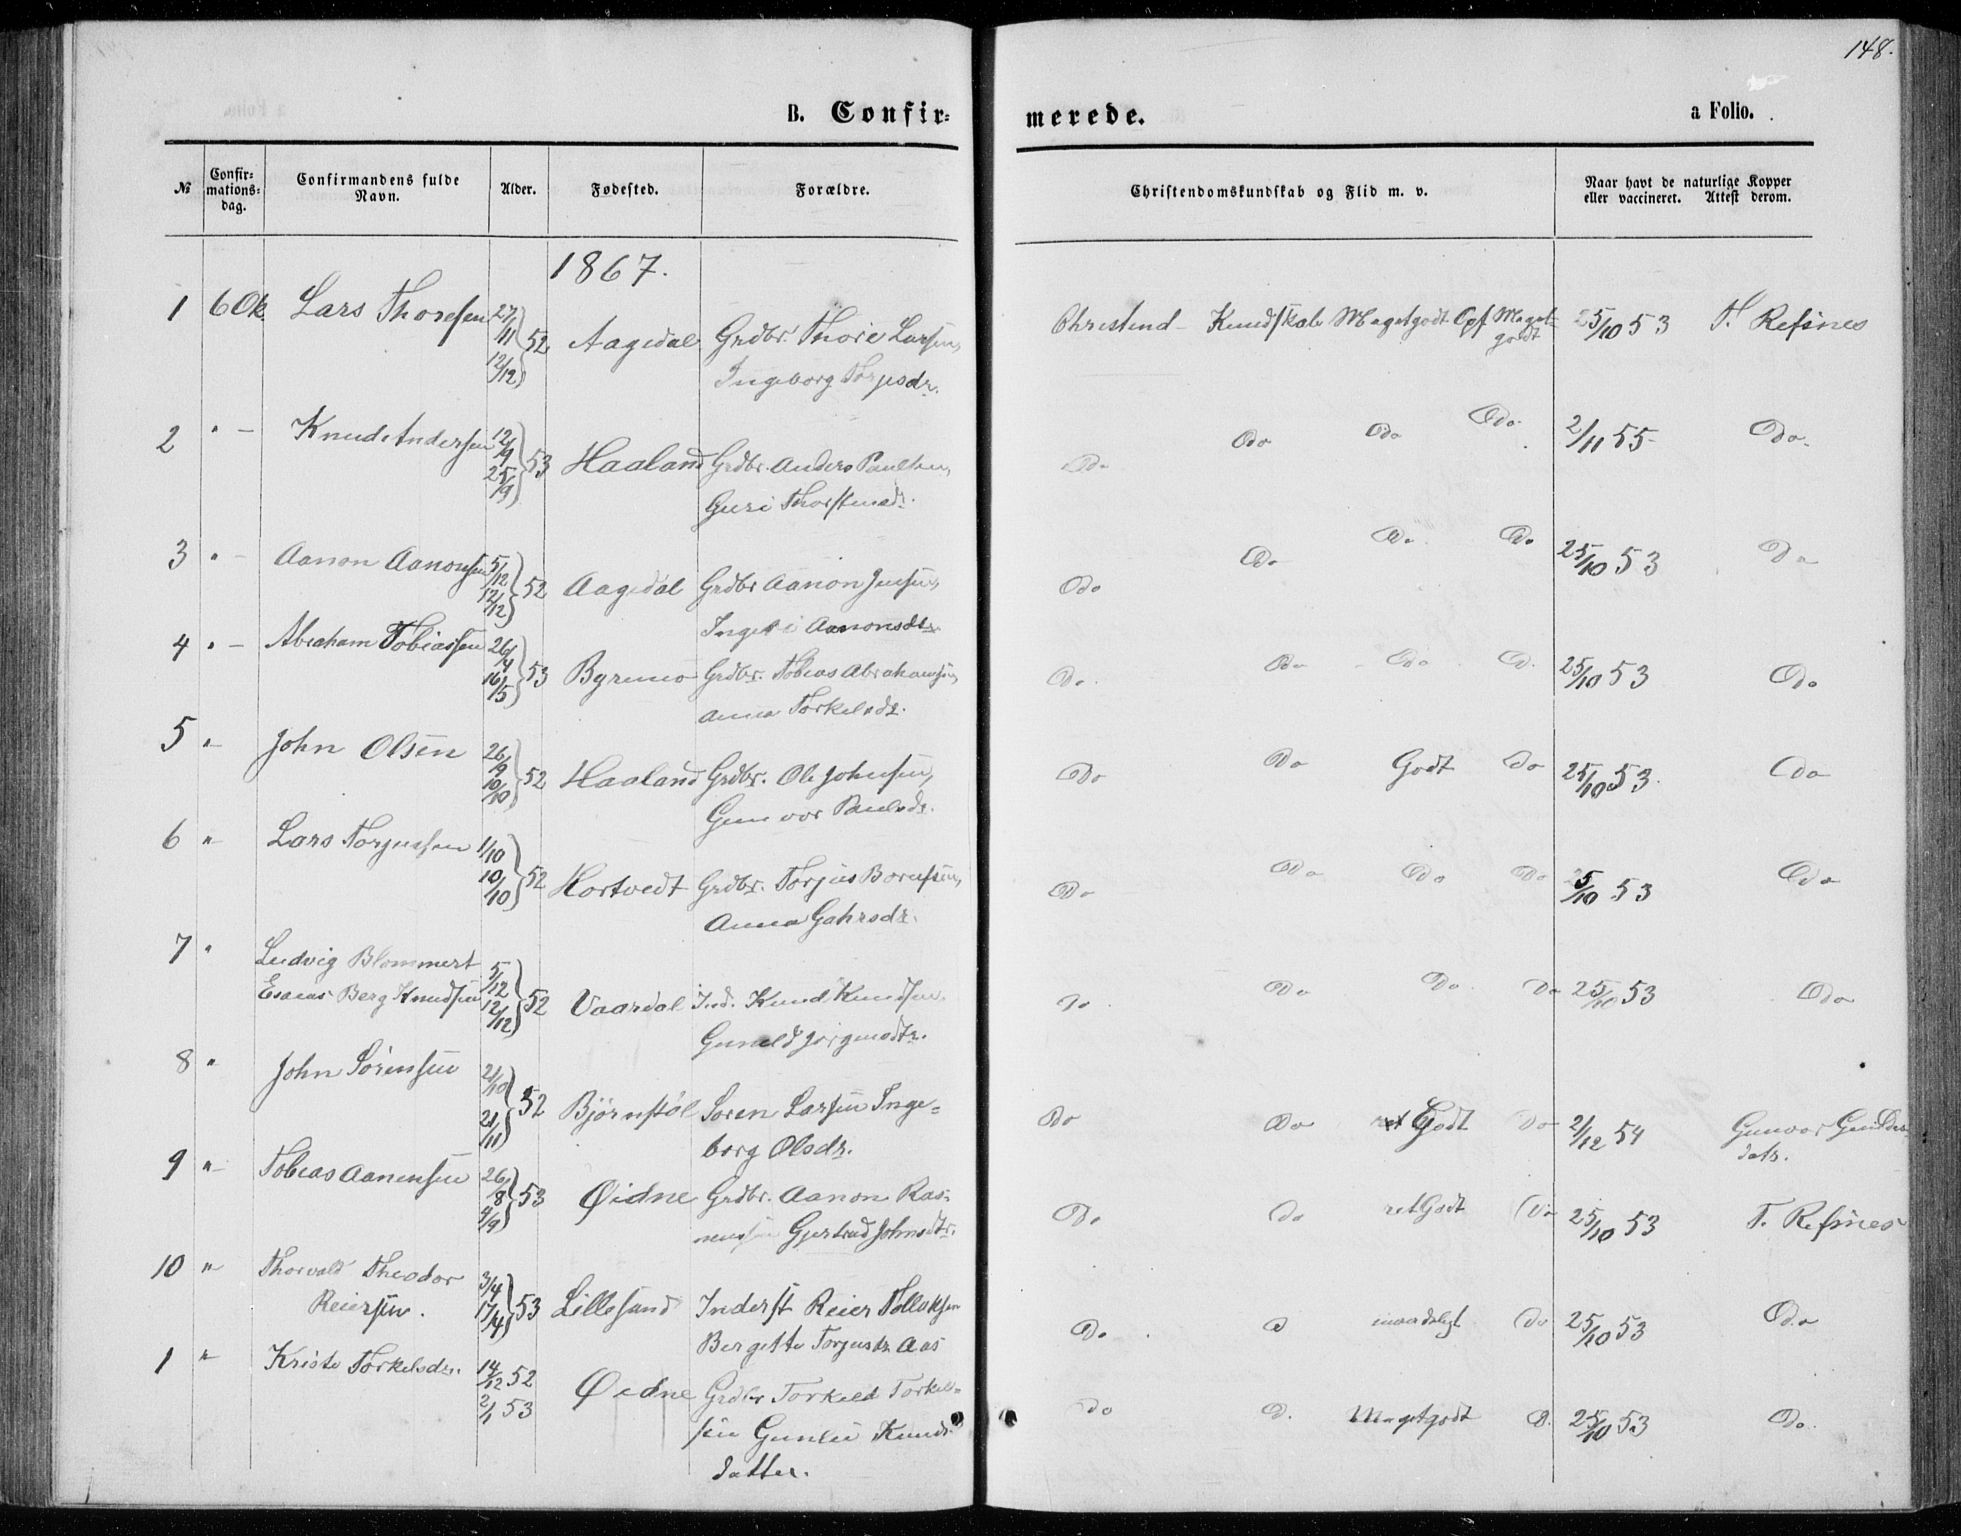 148.
B. Confir=
merede.
a Folio.
№
Confir=
mations=
dag.
Confirmandens fulde
Navn.
Alder.
Fødested.
Forældre.
Christendomskundskab og Flid m. v.
Naar havt de naturlige Kopper
eller vaccineret. Attest derom.
1867.
1 6 Ok. Lars Thoresen 27/11 12/12 } 52 Aagedal Grdbr. Thore Larsen,
Ingeborg Torjusdr.
Christend- Kundskab Megetgodt Opf Meget
godt 25/10 53 T. Refsnes
2 " - Knud Andersen 12/9 25/9 } 53 Haaland Grdbr. Anders Paulsen,
Guri Thorstensdr.
Do Do Do Do 2/11 55 Do
3 " - Aanon Aanonsen 5/12 12/12 } 52 Aagedal Grdbr Aanon Jensen,
Ingeri Aanonsdtr.
Do Do Do Do 25/10 53 Do
4 " - Abraham Tobiassen 26/4 16/5 } 53 Byremo Grdbr. Tobias Abrahamsen,
Anna Torkelsdr.
Do Do Do D. 25/10 53 Do
5 " John Olsen 26/9 10/10 } 52 Haaland Grdbr. Ole Johnsen,
Gunvor Paulsdr.
Do Do Godt Do 25/10 53. Do
6 " Lars Torjussen 1/10 10/10 } 52 Hortvedt Grdbr. Torjus Berntsen,
Anna Gahrsdr.
Do Do Do Do 25/10 53 Do
7 " Ludvig Blommert
Esaias Berg Knudsen 5/12 12/12 } 52 Vaardal Ind. Knud Knudsen.
Gunild Jørgensdtr.
Do Do Do Do 25/10 53 Do
8 " John Sørensen 21/10 21/11 } 52 Bjørnstøl Søren Larsen Inge=
borg Olsdr.
Do Do ret Godt Do 2/12 54 Gunvor Gunders
datr.
9 " Tobias Aanensen 26/8 4/9 } 53 Øidne Grdbr. Aanon Ras=
mussen Gjertrud Johnsdtr.
Do Do ret Godt Do 25/10 53 T. Refsnes
10 " Thorvald Theodor
Reiersen. 3/4 17/4 } 53 Lillesand Inderst Reier Tollaksen
Bergette Torjusdr. Aas
Do D maadeligt Do 25/10 53 Do
1 " Kriste Torkelsdr. 14/12 52 2/1 53 Øidne Grdbr Torkild Torkel=
sen Gunlu Knuds
datter.
Do D. Megetgodt D. 25/10 53 Do